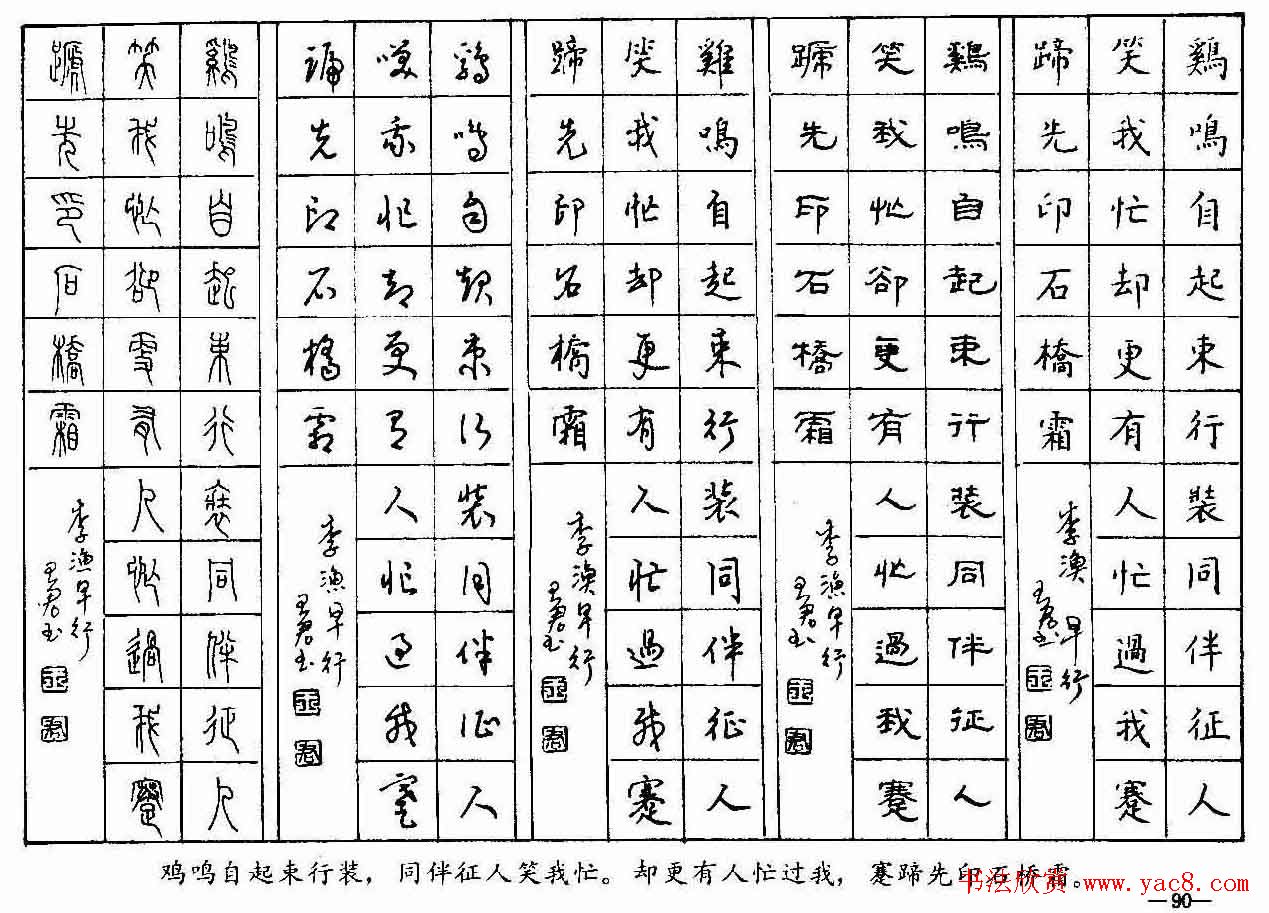 鷄鳴自起束行裝同伴征人
笑我忙却更有人忙過我蹇
蹄先印石橋霜
李漁早行
王君书
鷄鳴自起束行裝同伴征人
笑我忙卻更有人忙過我蹇
蹄先印石橋霜
李漁早行
王君书
雞鳴自起束行裝同伴征人
笑我忙却更有人忙過我蹇
蹄先印石橋霜
李漁早行
王君书
鷄鳴自起束行裝同伴征人
笑我忙却更有人忙過我蹇
蹄先印石橋霜
李漁早行
王君书
鷄鳴自起束行裝同伴征人
笑我忙卻更有人忙過我蹇
蹏先印石橋霜
李漁早行
王君书
鸡鸣自起束行装，同伴征人笑我忙。却更有人忙过我，蹇蹄先印石桥霜。
书法欣赏 www.yac8.com
—90—